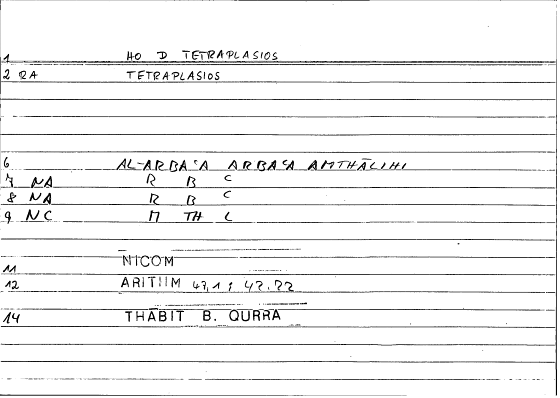 1 HO D TETRAPLASIOS
2 RA TETRAPLASIOS
6 AL-ARBAʿA ARBAʿA AMTHĀLIHI
7 NA R B C
8 NA R B C
9 NC M TH L
11 NICOM
12 ARITHM 47,1; 47.22
14 THĀBIT B. QURRA